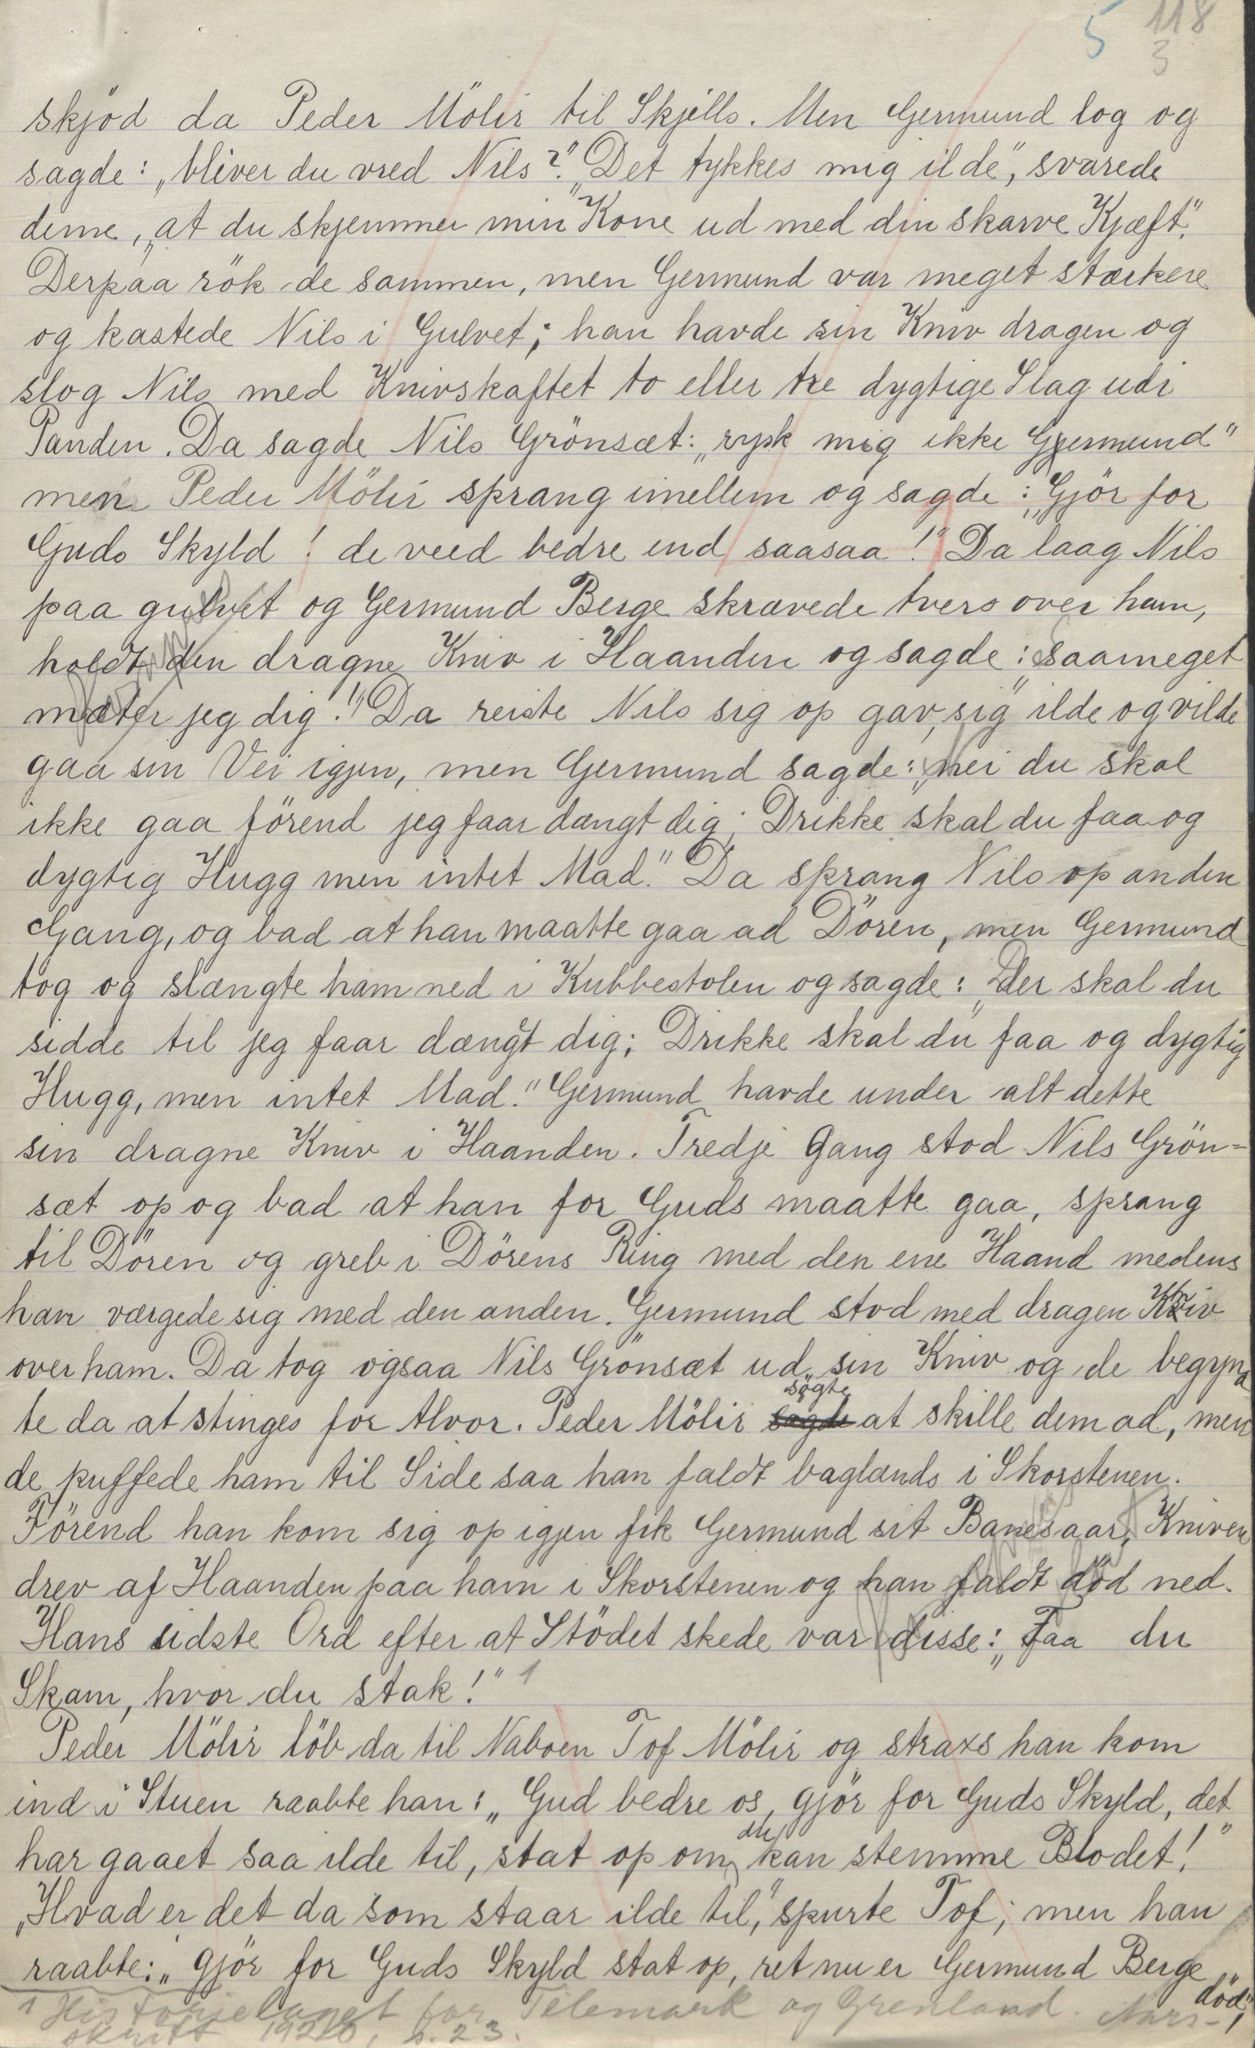 5 118
3
skjöd da Peder Mölir til Skjells. Men Germund log og
sagde: „bliver du vred Nils?" „Det tykkes mig ilde", svarede
denne, „at du skjemmer min Kone ud med din skarve Kjæft."
Derpaa rök de sammen, men Germund var meget stærkere
og kastede Nils i Gulvet; han havde sin Kniv dragen og
slog Nils med Knivskaftet to eller tre dygtige Slag udi
Panden. Da sagde Nils Grönsæt: „rysk mig ikke Germund"
men Peder Mölir sprang imellem og sagde: „Gjör for
Guds Skyld! de veed bedre end saasaa!" Da laag Nils
paa gulvet og Germund Berge skrævede tvers over ham,
holdt den dragne Kniv i Haanden og sagde: „saameget
mæter jeg dig!" Da reiste Nils sig op gav sig ilde og vilde
gaa sin Vei igjen, men Germund sagde: „nei du skal
ikke gaa förend jeg faar dængt dig; Drikke skal du faa og
dygtig Hugg men intet Mad." Da sprang Nils op anden
Gang, og bad at han maatte gaa ad Dören, men Germund
tog og slængte ham ned i Kubbestolen og sagde: „der skal du
sidde til jeg faar dængt dig; Drikke skal du faa og dygtig
Hugg, men intet Mad." Germund havde under alt dette
sin dragne Kniv i Haanden. Tredje Gang stod Nils Grön-
sæt op og bad at han for Guds maatte gaa, sprang
til Dören og greb i Dörens Ring med den ene Haand medens
han værgede sig med den anden. Germund stod med dragen Kniv
over ham. Da tog ogsaa Nils Grönsæt ud sin Kniv og de begynd
te da at stinges for Alvor. Peder Mölir sagde søgte at skille dem ad, men
de puffede ham til Side saa han faldt baglænds i Skorstenen.
Förend han kom sig op igjen fik Germund sit Banesaar, Kniven
drev af Haanden paa ham i Skorstenen og han faldt död ned.
Hans sidste Ord efter at Stödet skede var disse: „Faa du
Skam, hvor du stak!" 1
Peder Mölir löb da til Naboen Tof Mölir og straxs han kom
ind i Stuen raabte han: „Gud bedre os, gjör for Guds Skyld, det
har gaaet saa ilde til, stat op om du kan stemme Blodet!"
„Hvad er det da som staar ilde til," spurte Tof; men han
raabte: „gjör for Guds Skyld stat op, ret nu er Germund Berge
död!"
1 Historielaget for Telemark og Grenland. Aars-
skrift s. 23.